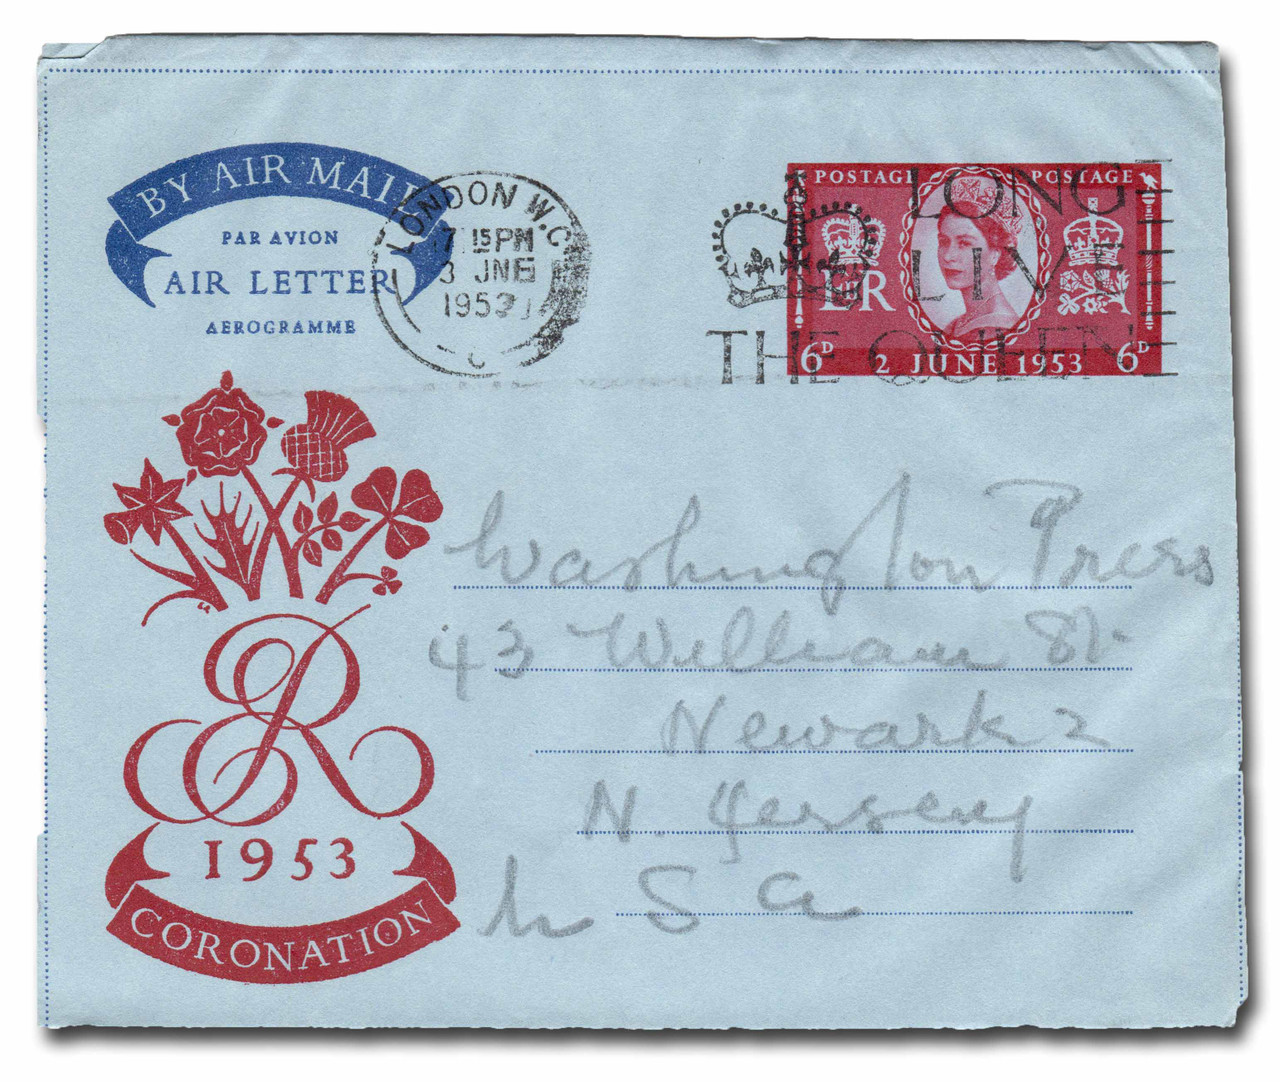 BY AIR MAIL
PAR AVION
AIR LETTER
AEROGRAMME
LONDON W.C.
7 15 PM
3 JNE
1953
POSTAGE POSTAGE
E R
6D 2 JUNE 1953 6D
LONG
LIVE
THE QUEEN
Washington Press
43 William St.
Newark 2
N. Jersey
U S A
ER
1953
CORONATION